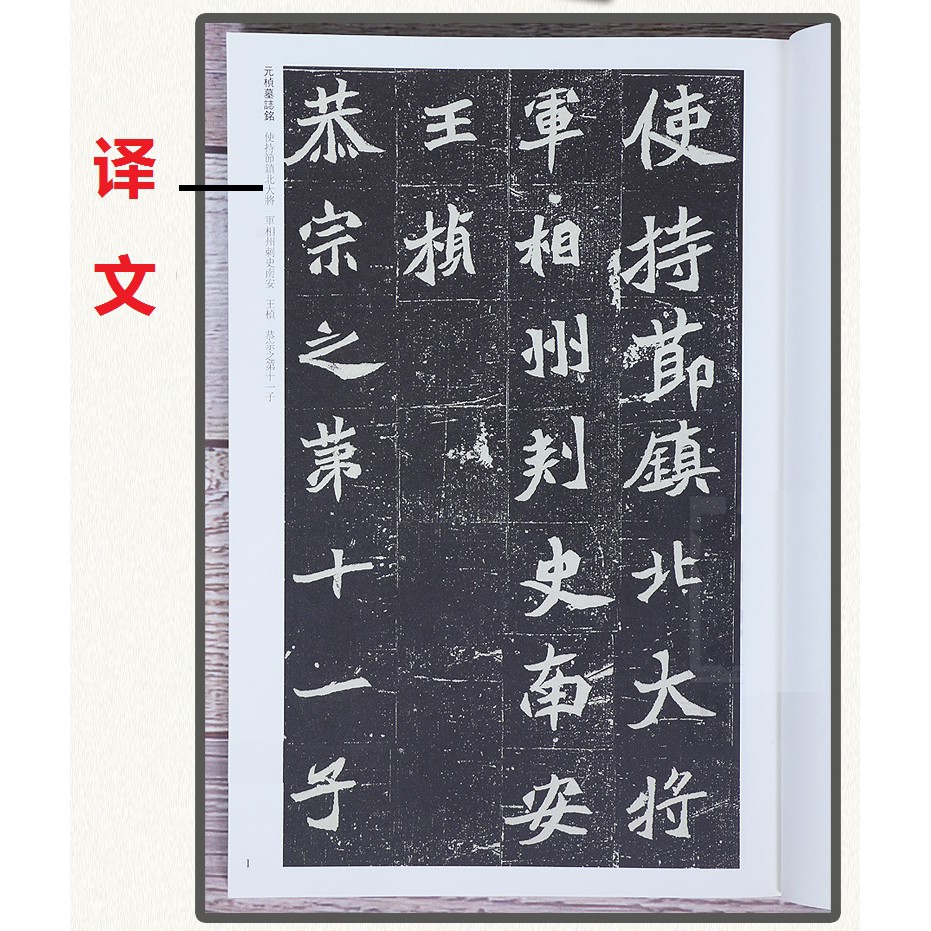 译文
元楨墓誌銘 使持節鎮北大將 軍相州刺史南安 王楨 恭宗之第十一子
使持節鎮北大將
軍相州刾史南安
王楨
恭宗之第十一子
1